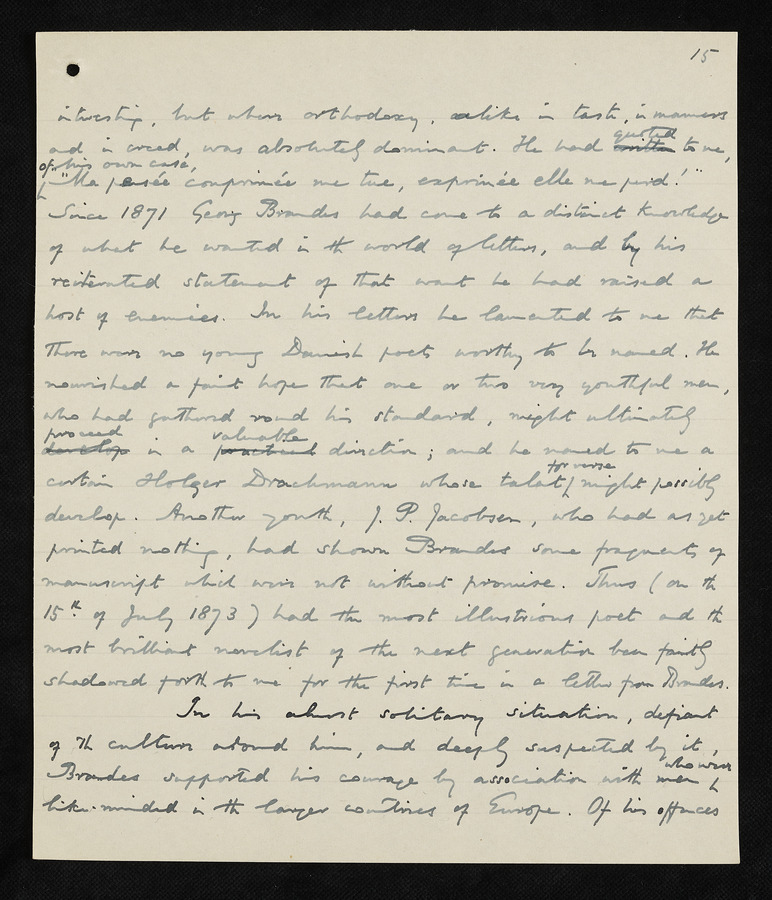 15
interesting, but where orthodoxy, alike in taste, in manners
and in creed, was absolutely dominant. He had written quoted to me,
of his own case,
"Ma pensée comprimée me tue, exprimée elle me perd!"
Since 1871 Georg Brandes had come to a distinct knowledge
of what he wanted in the world of letters, and by his
reiterated statement of that want he had raised a
host of enemies. In his letters he lamented to me that
there were no young Danish poets worthy to be named. He
nourished a faint hope that one or two very youthful men,
who had gathered round his standard, might ultimately
proceed valuable
develop in a practical direction; and he named to me a
for verse
certain Holger Drachmann whose talent might possibly
develop. Another youth, J. P. Jacobsen, who had as yet
printed nothing, had shown Brandes some fragments of
manuscript which were not without promise. Thus (on the
15th of July 1873) had the most illustrious poet and the
most brilliant novelist of the next generation been faintly
shadowed forth to me for the first time in a letter from Brandes.
In his almost solitary situation, defiant
of the culture around him, and deeply suspected by it,
who were
Brandes supported his courage by association with men
like-minded in the larger countries of Europe. Of his offences